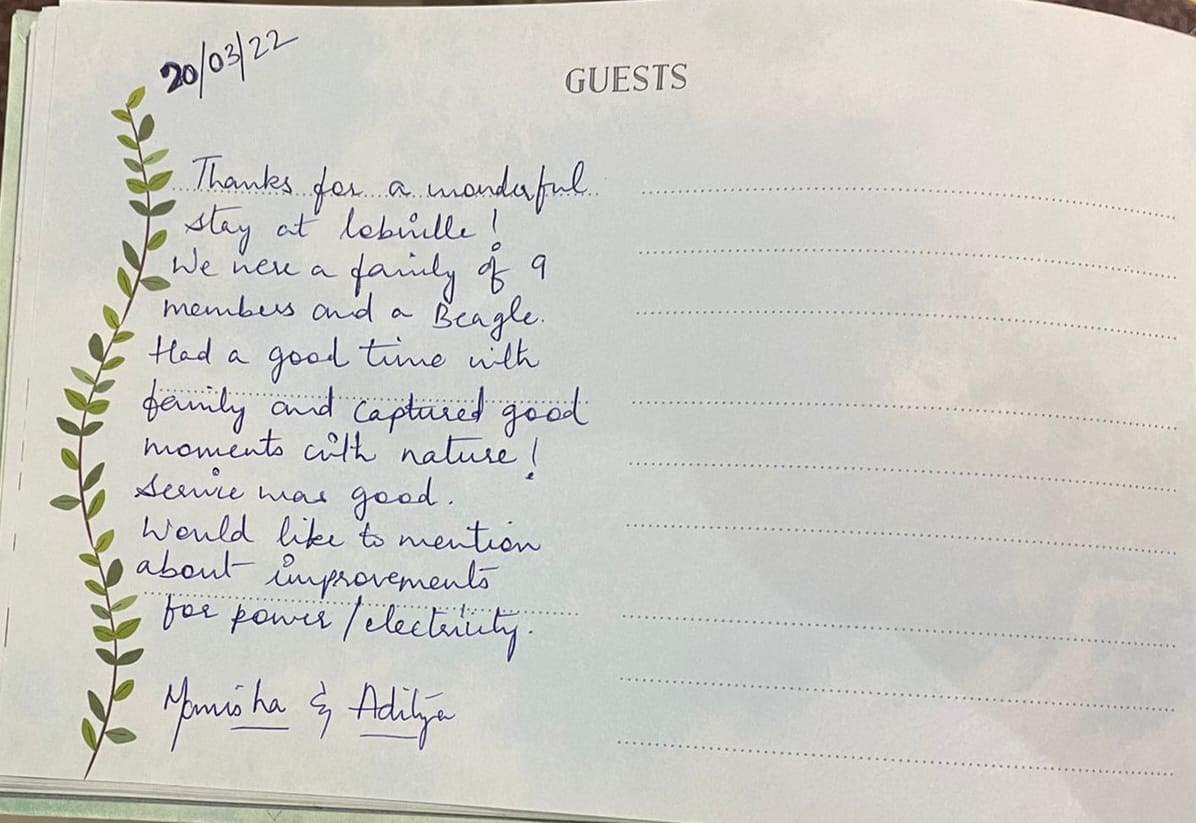 20/03/22
GUESTS
Thanks for a wonderful
stay at lobville!
We were a family of 9
members and a Beagle.
Had a good time with
family and captured good
moments with nature!
Service was good.
Would like to mention
about improvements
for power/electricity.
Manisha & Aditya